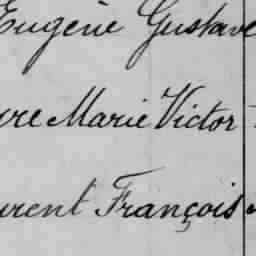 Eugène Gustave
re Marie Victor
urent François